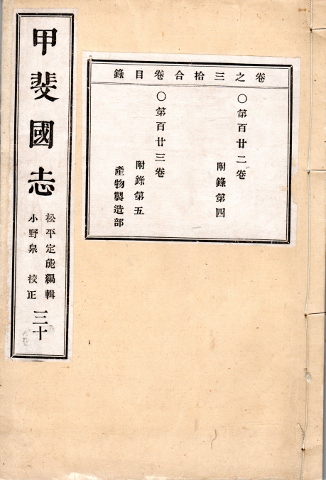 卷之三拾合卷目錄
○第百廿二卷
附錄第四
○第百廿三卷
附錄第五
產物製造部
甲斐國志
松平定能編輯
小野泉校正
三十